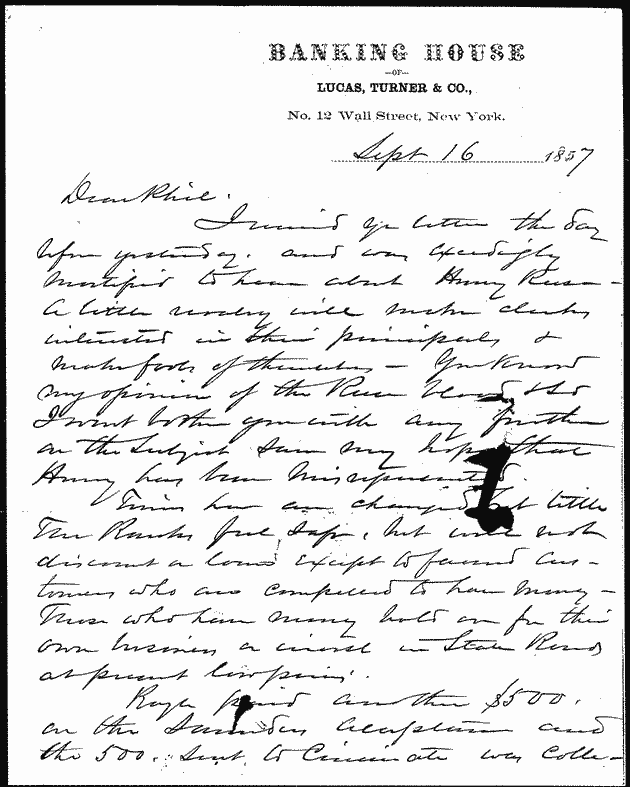 BANKING HOUSE
—OF—
LUCAS, TURNER & CO.,
No. 12 Wall Street, New York.
Sept 16 1857
Dear Phil.
I received yr letter the day
before yesterday. and was exceedingly
mortified to hear about Henry Reese—
A little will make clerks
interested in their principals &
make fools of themselves — You know
my opinion of the Reese blood & so
I wont bother you with any further
on the subject save my hope that
Henry has been misrepresented.
Times here are changed but little
The Banks feel safe, but will not
discount or loan except to favored cus-
tomers who are compelled to have money —
Those who have money hold on for their
own business or invest in State Bonds
at present low prices.
paid another $500.
on the Saunders acceptance and
the 500. sent to Cincinnati was colle-